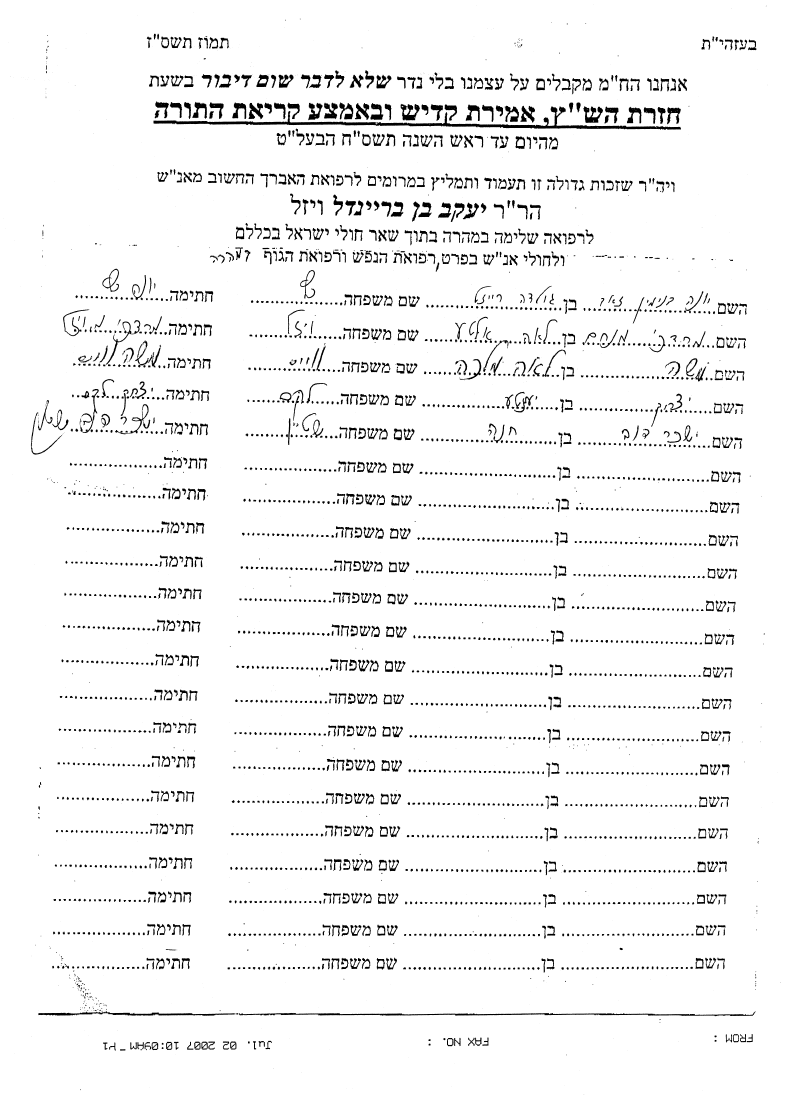 בעזהי"ת
תמוז תשס"ז
אנחנו הח"מ מקבלים על עצמנו בלי נדר שלא לדבר שום דיבור בשעת
חזרת הש"ץ, אמירת קדיש ובאמצע קריאת התורה
מהיום עד ראש השנה תשס"ח הבעל"ט
ויה"ר שזכות גדולה זו תעמוד ותמליץ במרומים לרפואת האברך החשוב מאנ"ש
הר"ר יעקב בן בריינדל ויזל
לרפואה שלימה במהרה בתוך שאר חולי ישראל בכללם
ולחולי אנ"ש בפרט, רפואת הנפש ורפואת הגוף
השם יונה בנימין זאב בן גולדה רייזל שם משפחה חתימה
השם מרדכי מנחם בן לאה אלטע שם משפחה ויזל חתימה מרדכי ויזל
השם משה בן לאה מלכה שם משפחה ווייס חתימה משה ווייס
השם יצחק בן יוטע שם משפחה לקס חתימה יצחק לקס
השם ישכר דוב בן חנה שם משפחה שטיין חתימה ישכר דוב שטיין
השם בן שם משפחה חתימה
השם בן שם משפחה חתימה
השם בן שם משפחה חתימה
השם בן שם משפחה חתימה
השם בן שם משפחה חתימה
השם בן שם משפחה חתימה
השם בן שם משפחה חתימה
השם בן שם משפחה חתימה
השם בן שם משפחה חתימה
השם בן שם משפחה חתימה
השם בן שם משפחה חתימה
השם בן שם משפחה חתימה
השם בן שם משפחה חתימה
השם בן שם משפחה חתימה
השם בן שם משפחה חתימה
השם בן שם משפחה חתימה
FROM : FAX NO. : Jul. 02 2007 10:09AM P1